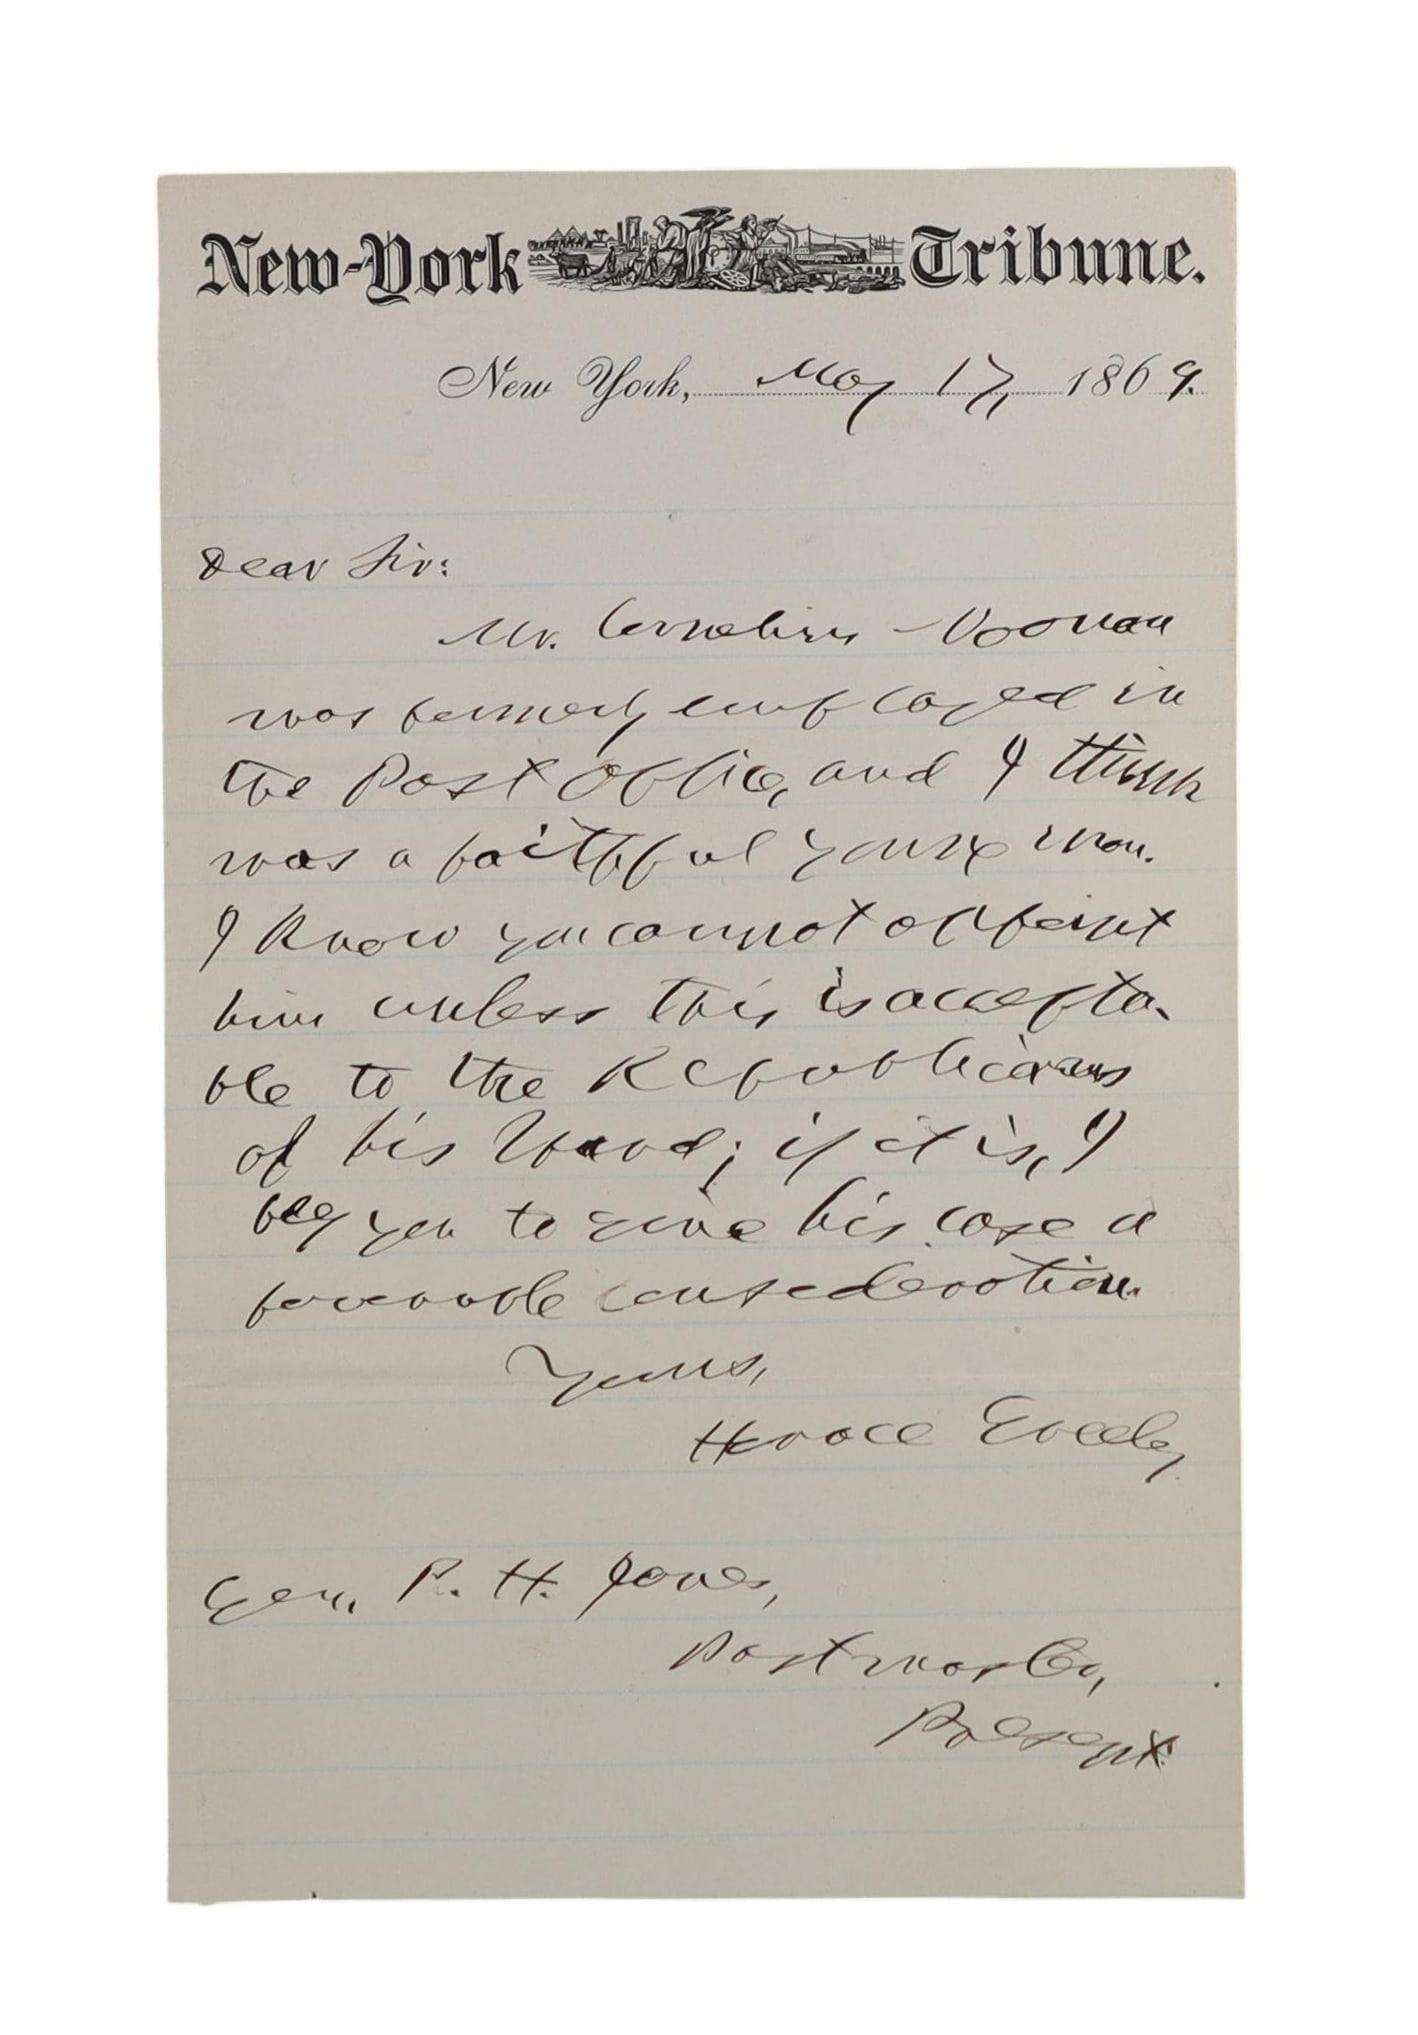 New-York Tribune.
New York, May 17, 1869.
Dear Sir:
Mr. Cornelius Noonan
was formerly employed in
the Post Office, and I think
was a faithful young man.
I know you cannot appoint
him unless this is accepta-
ble to the Republicans
of his Ward; if it is, I
beg you to give his case a
favorable consideration.
Yours,
Horace Greeley
Gen. P. H. Jones,
Postmaster,
Present.